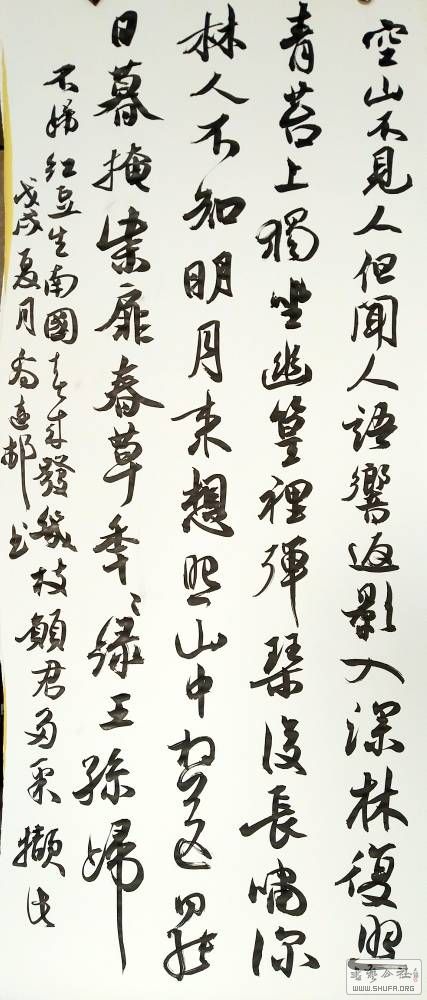 空山不見人但聞人語響返影入深林復照
青苔上獨坐幽篁裡彈琴復長嘯深
林人不知明月来想照山中相送罷
日暮掩柴扉春草年々绿王孫歸
不歸红豆生南國春来發幾枝願君多采擷此
戊戌夏月 书
书法公社
WWW.SHUFA.ORG